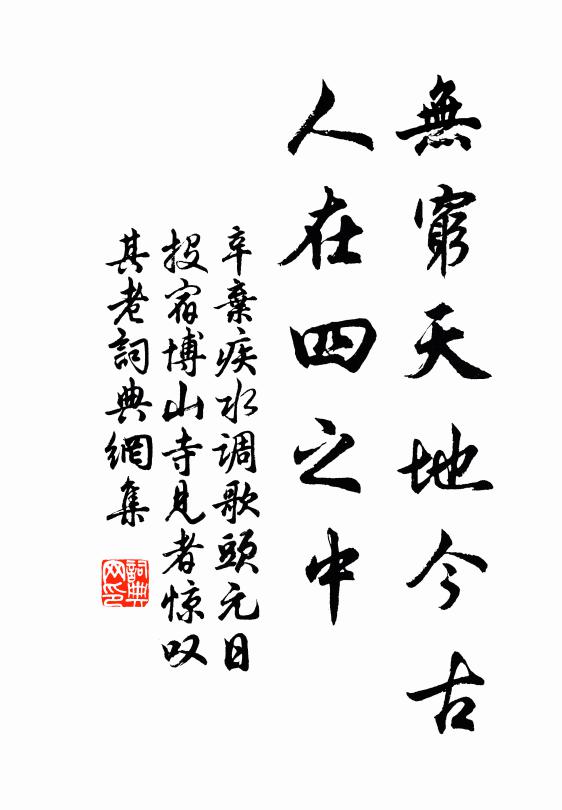 無窮天地今古
人在四之中
辛棄疾水调歌頭元日
投宿博山寺見者惊叹
其老詞典網集
詞典网印